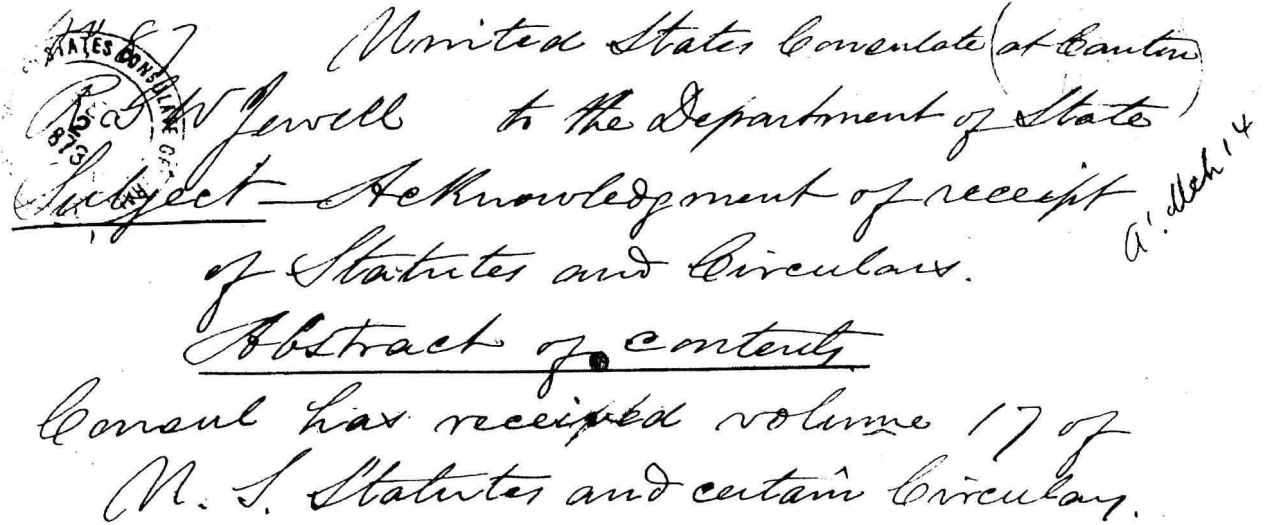 No 87 United States Consulate (at Canton)
R. G. W. Jewell to the Department of State
Subject - Acknowledgment of receipt
of Statutes and Circulars.
Abstract of contents
Consul has received volume 17 of
U. S. Statutes and certain Circulars.
a'. Mch 14
STATES CONSULATE GE
1873